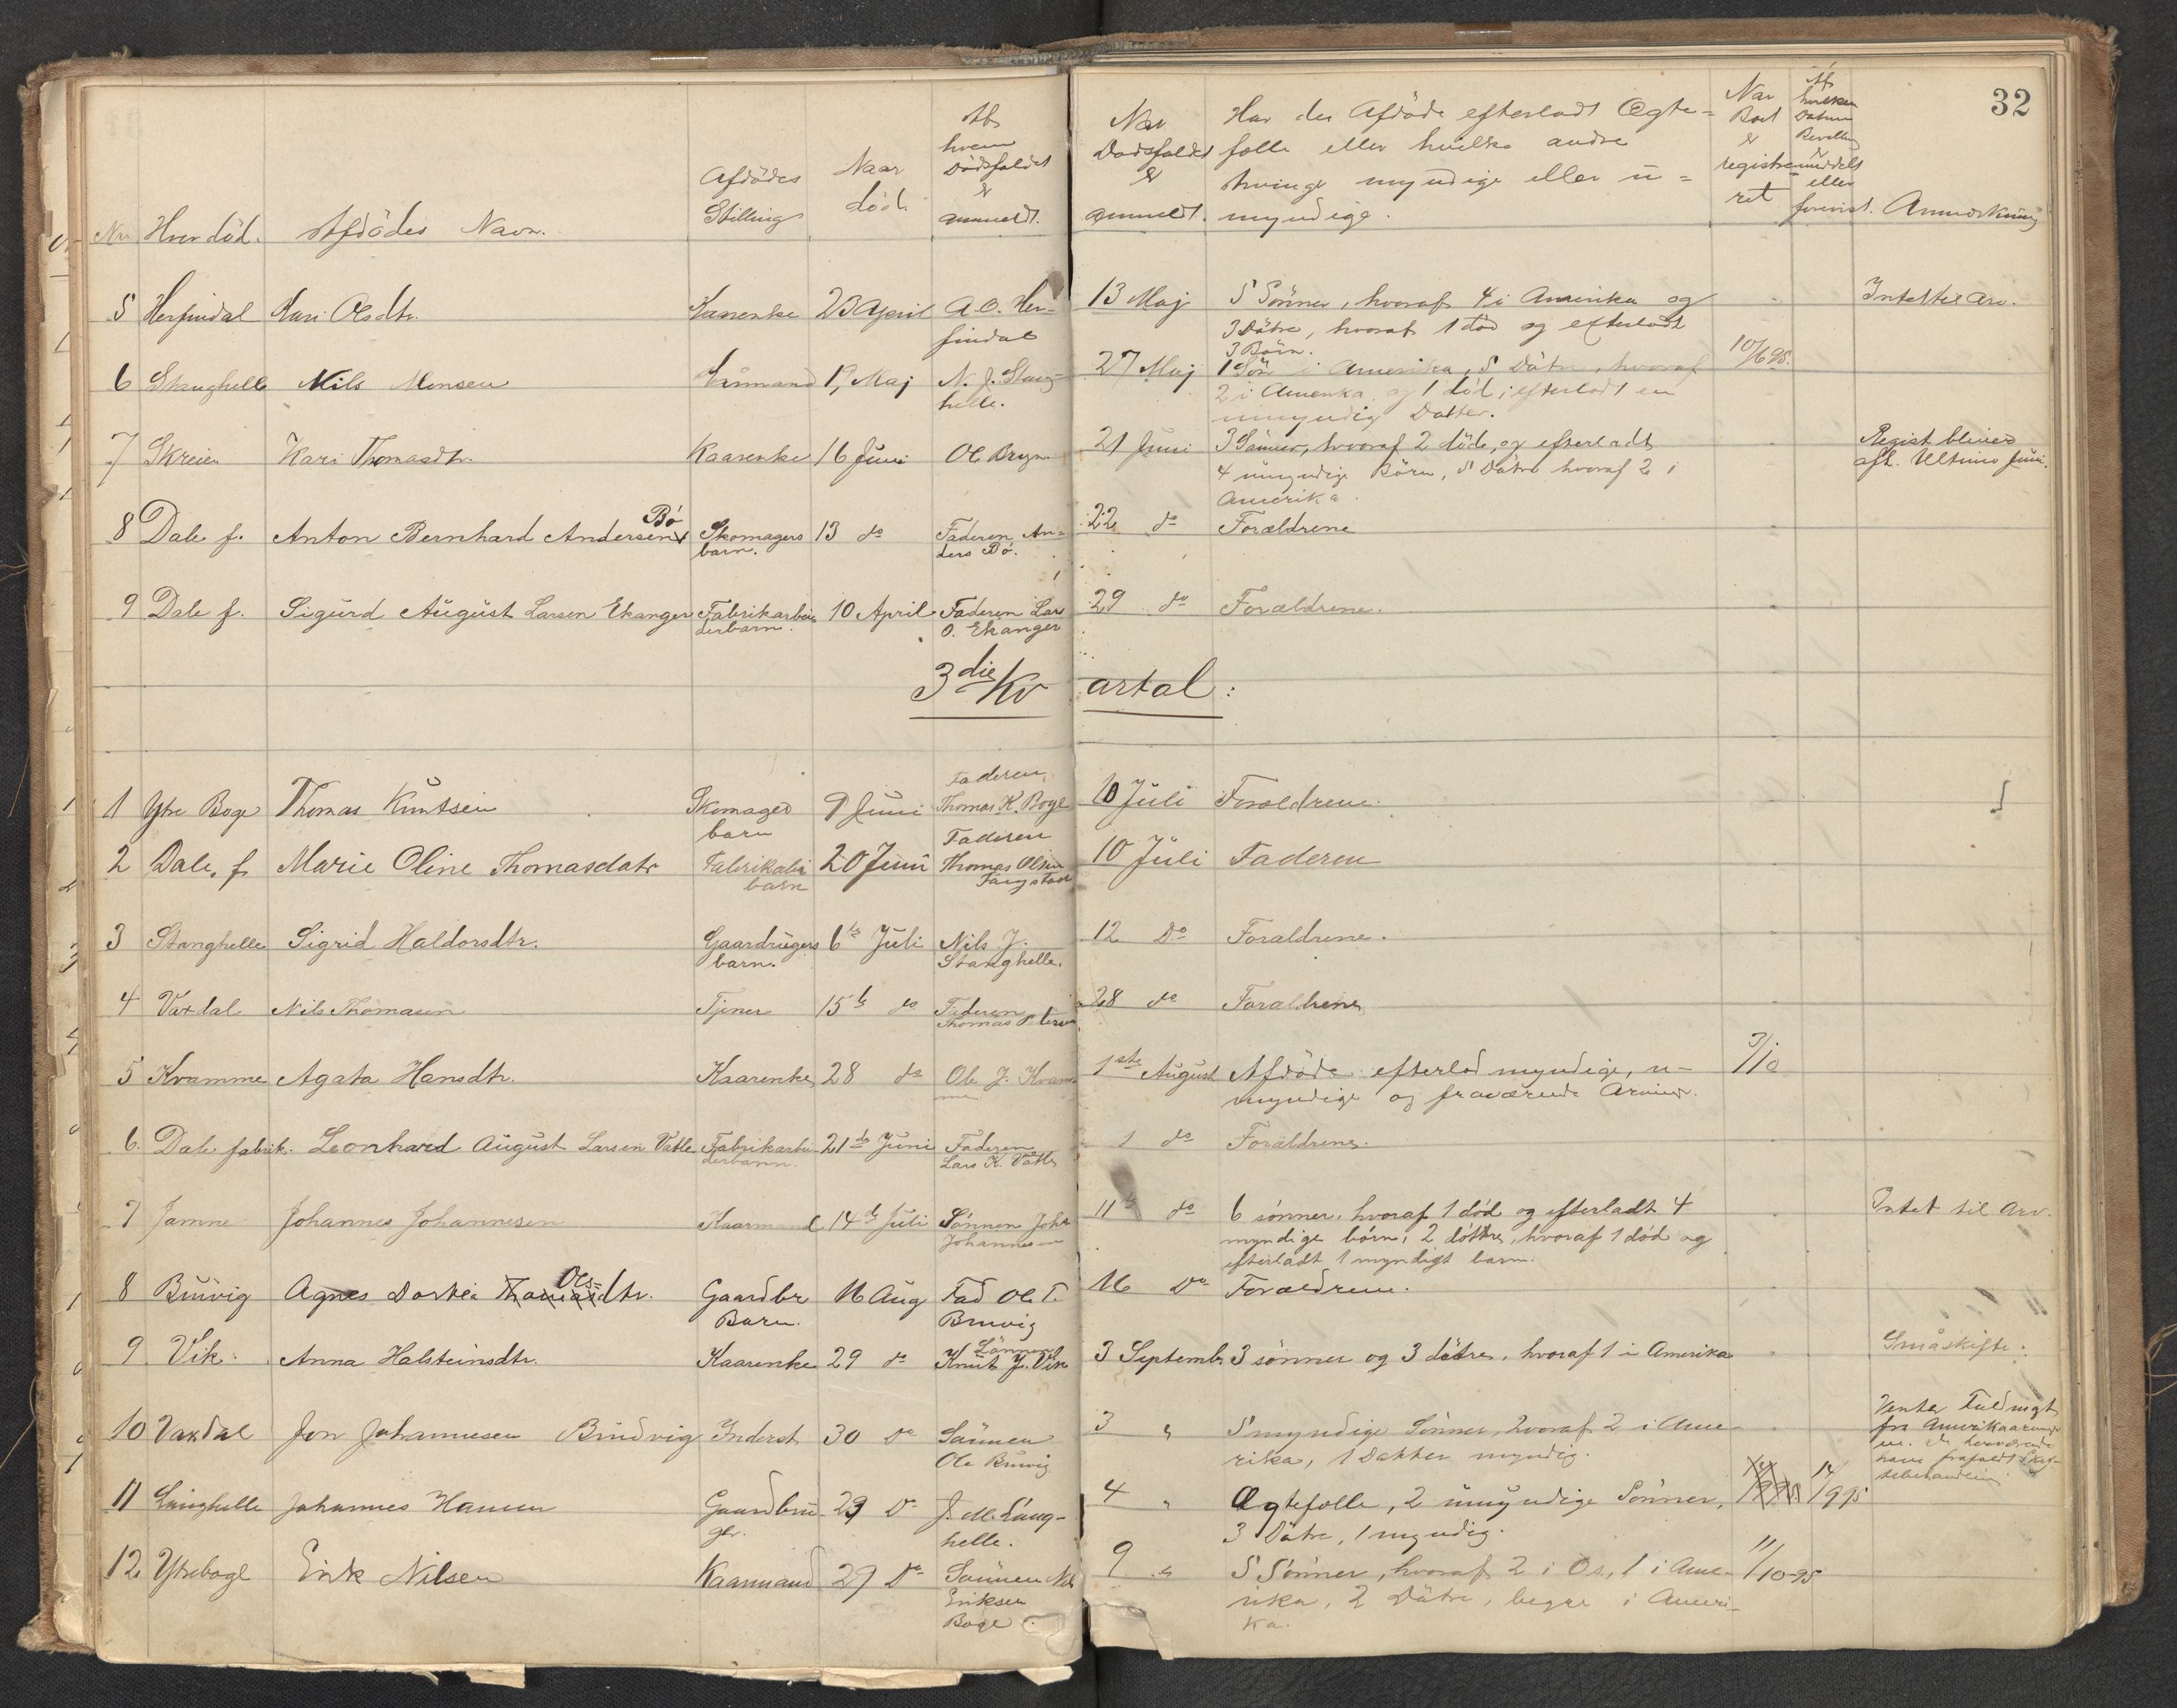 32
Nr Hvor død. Afdødes Navn. Afdødes Stilling Naar død. Af hvem Dødsfaldet er anmeldt. Nar Dødsfaldet er anmeldt. Har den Afdøde efterladt Ægte=
fælle eller hvilke andre
tvinge myndige eller u=
myndige.
Nar Boet er registre=
ret
Af hvilken Datum Bevilling er meddelt eller forevist. Anmærkning
5 Herfindal Kari Olsdtr. Kaarenke 23 April A. O. Her- 13 Maj 5 Sønner, hvoraf 4 i Amerika og Intet til Arv.
findal 3 Døtre, hvoraf 1 død og efterladt
3 Børn.
6 Stanghelle Nils Monsen 19 Maj N. J. Stang- 27 Maj 1 Søn i Amerika, 5 Døtre, hvoraf 10/6 95.
helle. 2 i Amerika og 1 død, efterladt en
umyndig Datter.
7 Skreien Kari Thomasdtr. Kaarenke 16 Juni Ole Bryn 21 Juni 3 Sønner, hvoraf 2 døde, og efterladt Regist. bliver
4 umyndige Børn, 5 Døtre hvoraf 2 i afh. Ultimo Juni.
Amerika.
8 Dale f. Anton Bernhard Andersen Bø Skomagers 13 do Faderen An= 22 do Forældrene
barn. ders Bø.
9 Dale f. Sigurd August Larsen Ekanger Fabrikarbei 10 April Faderen Lars 29 do Forældrene.
derbarn. O. Ekanger
3die Kvartal:
1 Ytre Boge Thomas Knutsen Skomager 9 Juni Faderen Thomas K. Boge 10 Juli Forældrene.
barn
2 Dale, f Marie Oline Thomasdatr Fabrikarbi 20 Juni Faderen Thomas Olsen 10 Juli Faderen
barn
3 Stanghelle Sigrid Haldorsdtr. Gaardbrugers 6te Juli Nils J. 12 Do Forældrene.
barn. Stanghelle.
4 Vaxdal Nils Thomasen Tjener 15de do Faderen 28 do Forældrene
Thomas
5 Kvamme Agata Hansdtr. Kaarenke 28 do Ole J. Kvam 1ste August Afdøde efterlod myndige, u- 3/10
me myndige og fraværende Arvinger.
6. Dale fabrik. Leonhard August Larsen Vatle Fabrikarbei 21de Juni Faderen 1 do Forældrene.
derbarn. Lars K. Vatle
7 Jamne Johannes Johannesen Kaarmand 14de Juli Sønnen Joh 11te do 6 sønner, hvoraf 1 død og efterladt 4 Intet til Arv.
Johannesen myndige børn, 2 døttre, hvoraf 1 død og
efterladt 1 myndigt barn.
8 Bruvig Agnes Dortea Olsdtr. Gaardbr 16 Aug Fad Ole T. 16 Do Forældrene.
Barn. Bruvig
9 Vik. Anna Halsteinsdtr. Kaarenke 29 do Sønnen Knut J. Vik 3 Septembr 3 sønner og 3 døtre, hvoraf 1 i Amerika Småskifte.
10 Vaxdal Jon Johannesen Brudvig Inderst 30 Do Sønnen 3 " 5 myndige Sønner, hvoraf 2 i Ame- Venter Fuldmagt
Ole Bruvig rika, 1 Datter myndig. fra Amerikaarvinge
ne.
11 Langhelle Johannes Hansen Gaardbru 29 Do J. M. Lang- 4 " Ægtefælle, 2 umyndige Sønner, 14/9 95
ger. helle. 3 Døtre, 1 myndig.
12 Ytreboge Erik Nilsen Kaarmand 29 Do Sønnen Nils 9 " 5 Sønner, hvoraf 2 i Os, 1 i Ame- 11/10-95
Eriksen rika, 2 Døtre, begge i Ameri-
Boge ka.